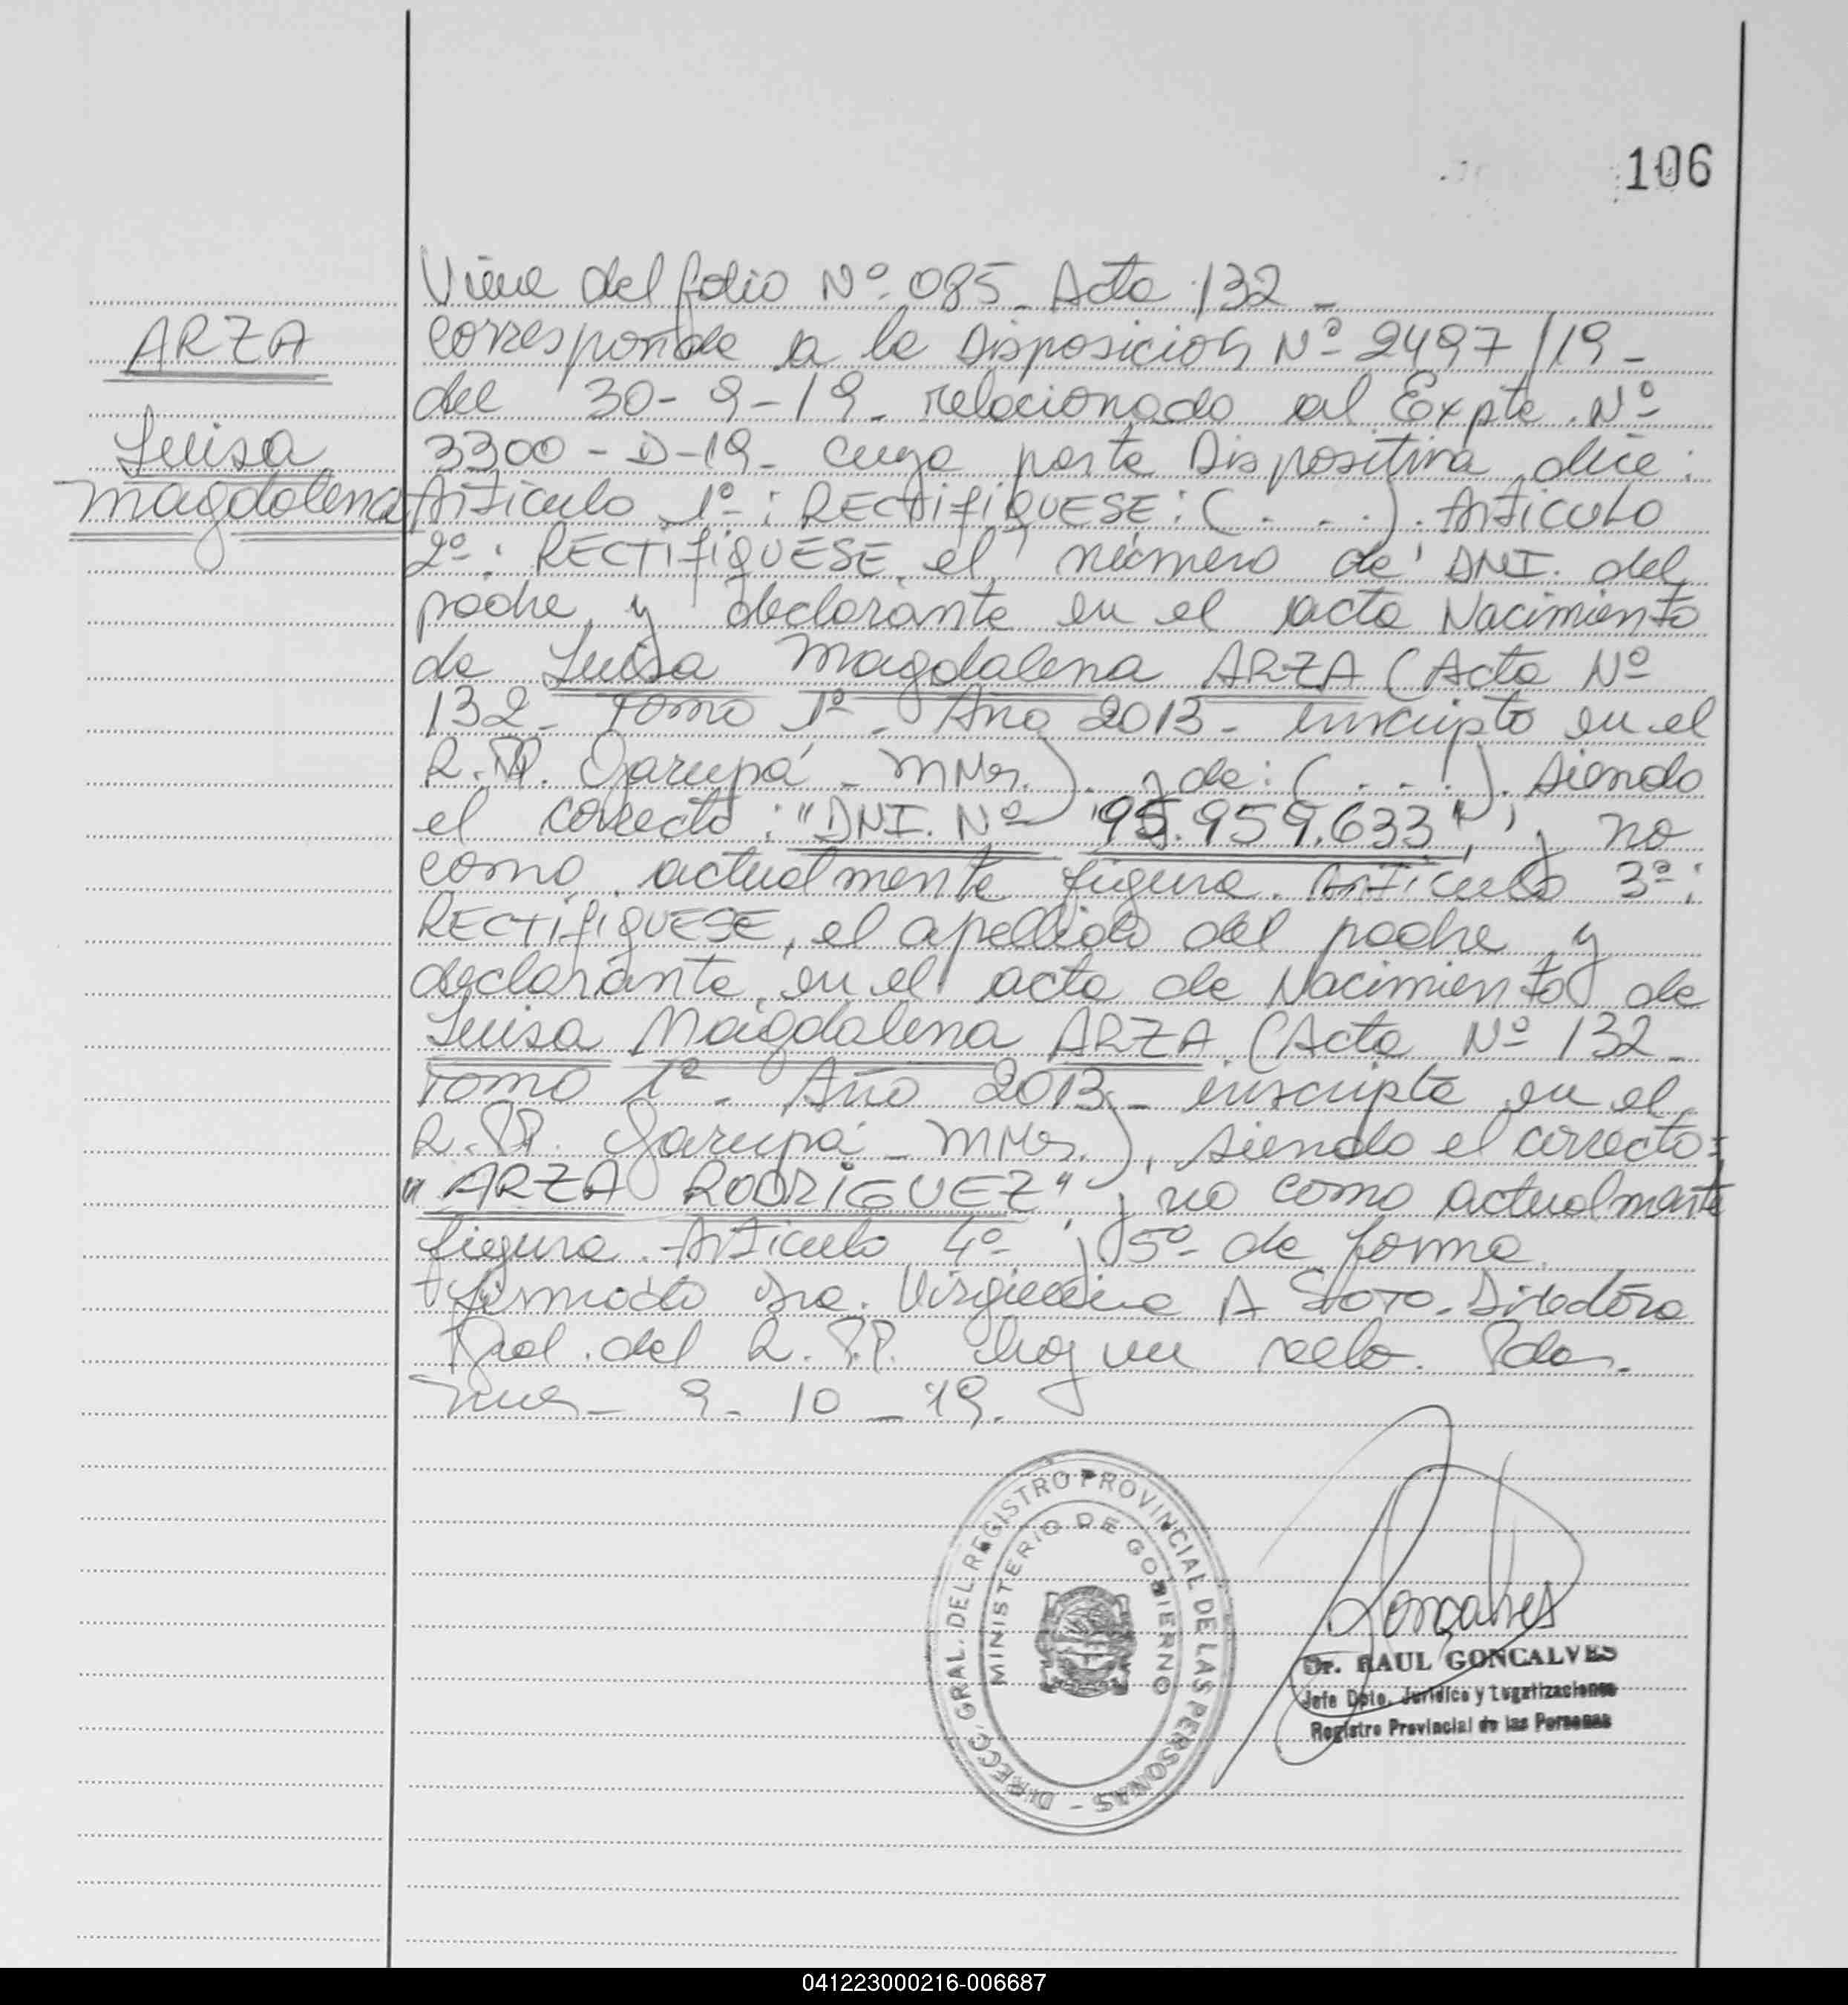 106
Viene del folio Nº 085 - Acta 132 -
ARZA
corresponde a la Disposición Nº 2497/19 -
del 30-9-19 - relacionado al Expte. Nº
Luisa
3300 - D-19 - cuya parte Dispositiva dice:
Magdalena
Artículo 1º: RECTIFIQUESE: (. . .). Artículo
2º: RECTIFIQUESE, el número de DNI. del
padre y declarante en el acta Nacimiento
de Luisa Magdalena ARZA (Acta Nº
132 - Tomo 1º - Año 2013 - inscripto en el
R.PP. Garupá - Mnes.). y de: (. . .). siendo
el correcto: "DNI. Nº 95.959.633", y no
como actualmente figura. Artículo 3º:
RECTIFIQUESE, el apellido del padre y
declarante en el acta de Nacimiento de
Luisa Magdalena ARZA (Acta Nº 132 -
Tomo 1º - Año 2013 - inscripta en el
R.PP. Garupá - Mnes.), siendo el correcto:
"ARZA RODRIGUEZ", y no como actualmente
figura. Artículo 4º y 5º de forma.
firmado Dra. A SOTO - Directora
Gral. del R.P.P. hay un sello. Pdas.
Mnes - 9 - 10 - 19.
DIRECC. GRAL. DEL REGISTRO PROVINCIAL DE LAS PERSONAS -
MINISTERIO DE GOBIERNO
Goncalves
Dr. RAUL GONCALVES
Jefe Dpto. Jurídico y Legalizaciones
Registro Provincial de las Personas
041223000216-006687